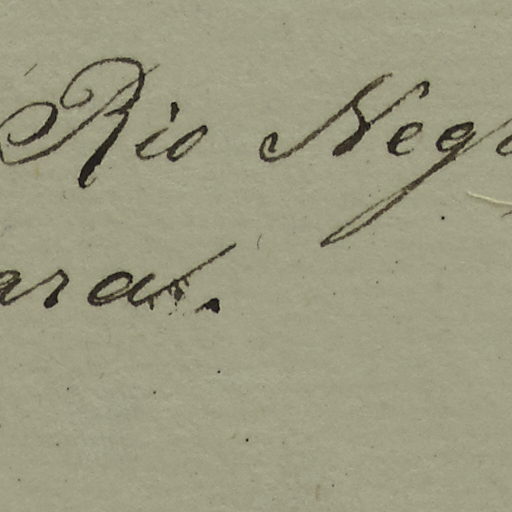 Rio Neg
ara.